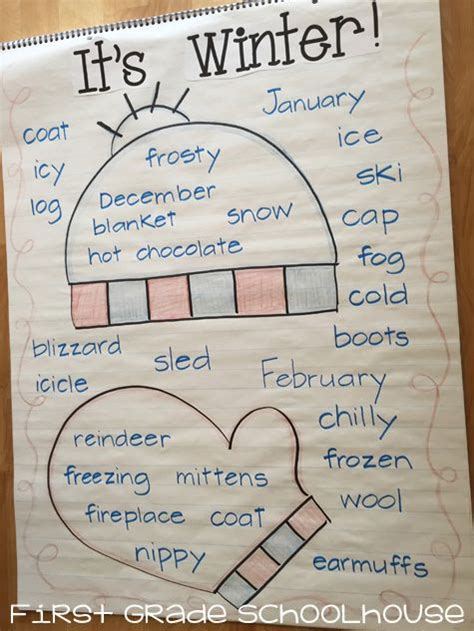 It's Winter!
January
coat
frosty
ice
icy
ski
December
log
blanket
snow
cap
hot chocolate
fog
cold
boots
blizzard
sled
icicle
February
chilly
reindeer
frozen
freezing mittens
wool
fireplace coat
nippy
earmuffs
First Grade Schoolhouse